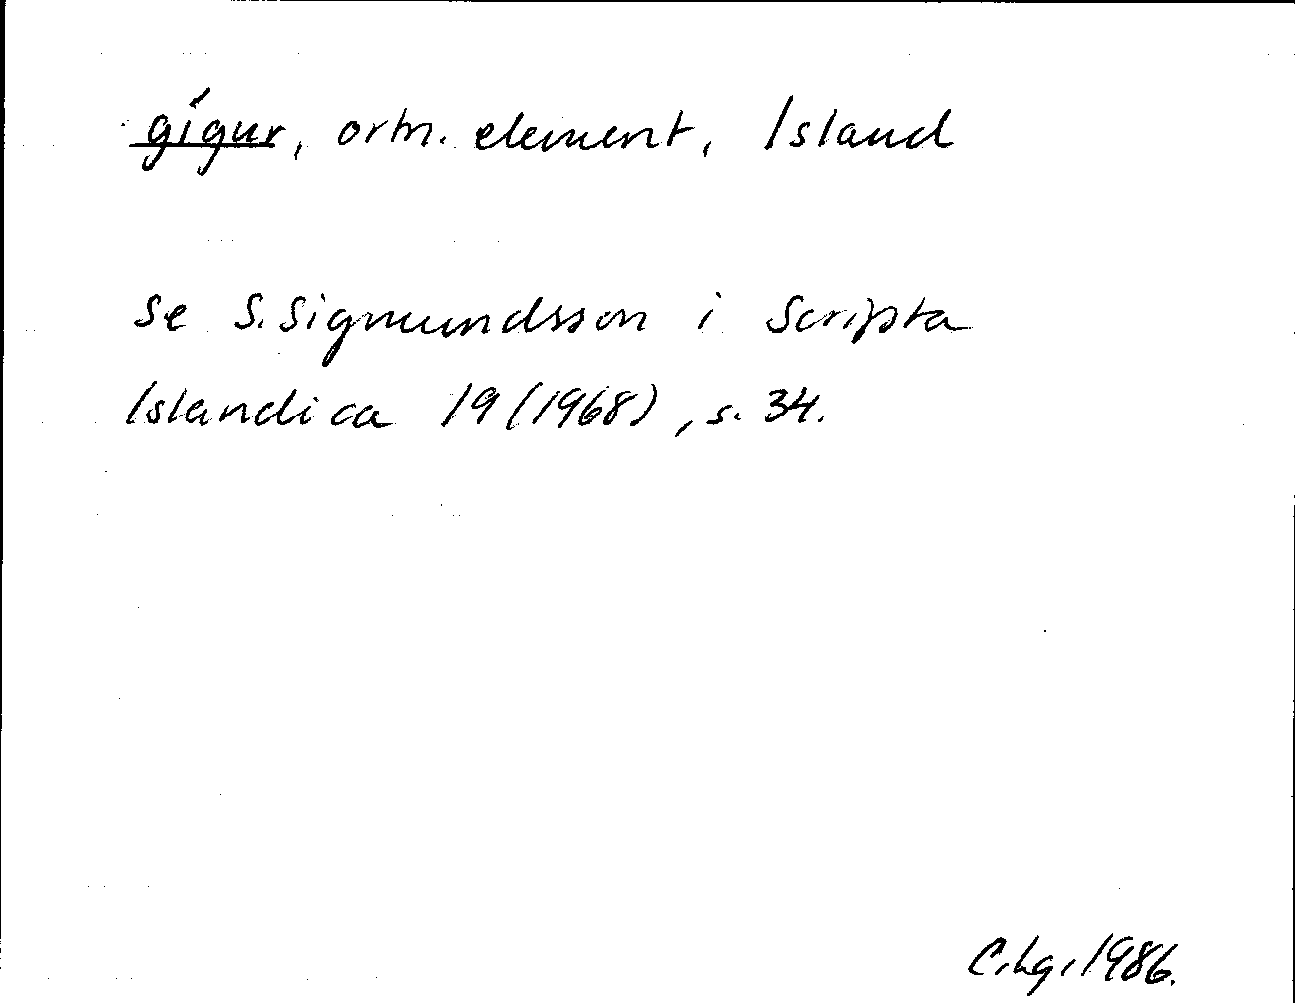 gígur, ortn. element, Island
se S. Sigmundsson i Scripta
Islandica 19 (1968), s. 34.
C. Lg, 1986.